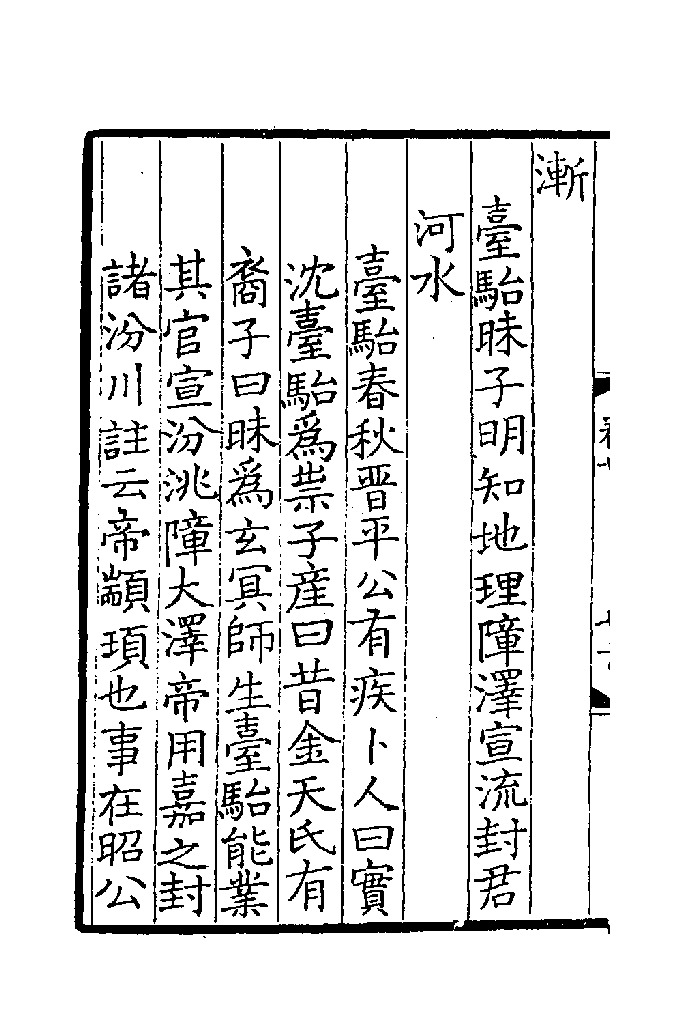 漸
臺駘昧子明知地理障澤宣流封君
河水
臺駘春秋晋平公有疾卜人曰實
沈臺駘爲祟子産曰昔金天氏有
裔子曰昧爲玄冥師生臺駘能業
其官宣汾洮障大澤帝用嘉之封
諸汾川註云帝顓頊也事在昭公